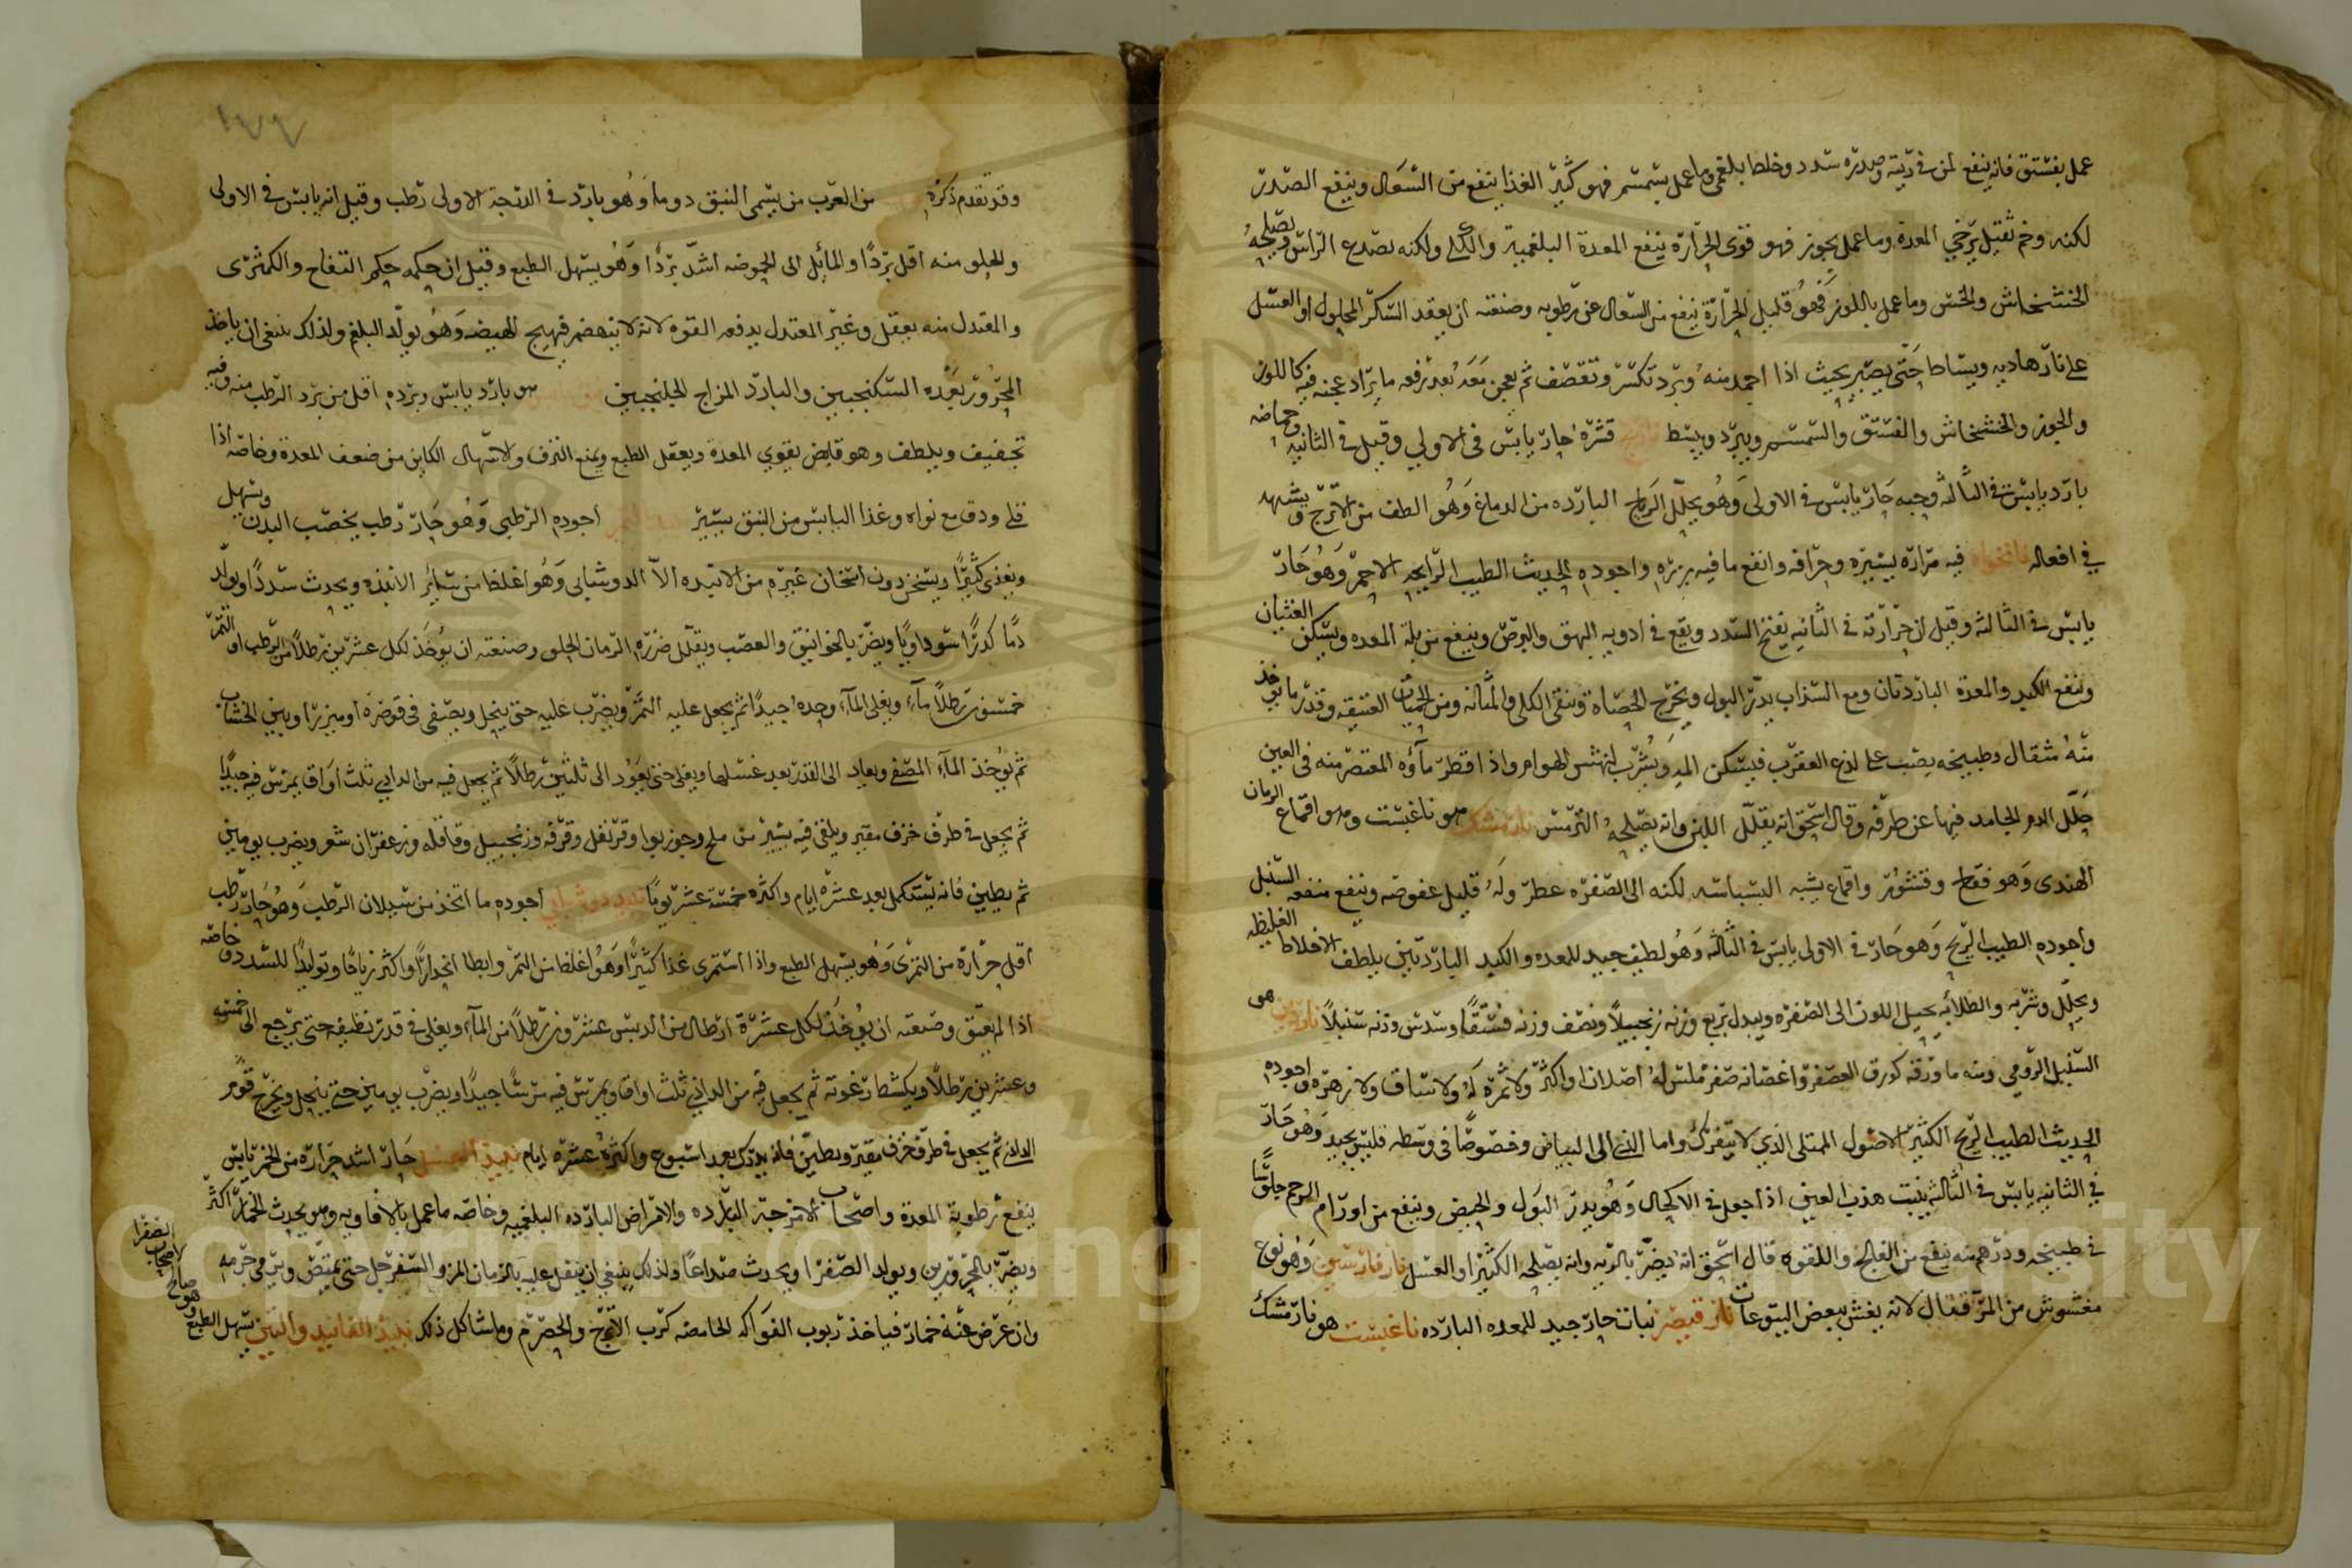 عمل بفستق فانه ينفع لمن في ريته وصدره سدد وخلط بلغمى وما عمل بسمسم فهو كثير الغذا ينفع من السعال وينفع الصدر
لكنه وخم ثقيل يرخي المعدة وما عمل بجوز فهو قوى الحرارة ينفع المعدة البلغمية والكلى ولكنه يصدع الراس ويصلحه
الخشخاش والخس وما عمل باللوز فهو قليل الحرارة ينفع من السعال عن رطوبه وصنعته ان يعقد السكر المحلول او العسل
على نار هاديه ويساط حتى يصير بحيث اذا اخد منه وبرد تكسر وتقصف ثم يعجن بعد رفعه ما يراد عجنه فيه كاللوز
والجوز والخشخاش والفستق والسمسم ويبرد ويبسط نارنج قشره حار يابس في الاولي وقيل في الثانيه وحماضه
بارد يابس في الثالثه وحبه حار يابس في الاولى وهو يحلل الرياح البارده من الدماغ وهو الطف من الاترج ويشبهه
في افعاله نانخواه فيه مرارة يسيره وحرافه وانفع ما فيه بزره واجوده الحديث الطيب الرايحه الاحمر وهو حار
يابس في الثالثه وقيل ان حرارته في الثانيه يفتح السدد ويقع في ادويه البهق والبرص وينفع من بلة المعده ويسكن الغثيان
وينفع الكبد والمعدة الباردتان ومع السذاب يدر البول ويخرج الحصاة وينقي الكلى والمثانه ومن الحميات العتيقه وقدر ما يوخذ
منه مثقال وطبيخه يصب على لذع العقرب فيسكن الم ويشرب لنهش الهوام واذا اقطر مآؤه المعتصر منه في العين
حلل الدم الجامد فيها عن طرفه وقال اسحق انه يقلل اللبن وانه يصلحه الترمس نارمشك هو ناغبشت وهو اقماع الرمان
الهندى وهو فقاح وقشور واقماع يشبه البسباسه لكنه الى الصفره عطر وله قليل عفوصه وينفع منفعه السنبل
واجوده الطيب الريح وهو حار في الاولى يابس في الثالثه وهو لطيف جيد للمعده والكبد الباردتين يلطف الاخلاط الغليظه
ويحلل وشربه والطلا به يحيل اللون الى الصفره ويبدل بربع وزنه زنجبيلا ونصف وزنه فستقا وسدس وزنه سنبلا ناردين هو
السنبل الرومي ومنه ما ورقه كورق العصفر واغصانه صفر ملس له اصلان او اكثر ولا ثمره له ولا ساق ولا زهره واجوده
الحديث الطيب الريح الكثير الاصول الممتلى الذي لا يتفرك واما الذى الى البياض وخصوصا في وسطه فليس بجيد وهو حار
في الثانيه يابس في الثالثه ينبت هدب العين اذا جعل في الاكحال وهو يدر البول والحيض وينفع من اورام الرحم جلوسا
في طبيخه ودرهم منه ينفع من الفالج واللقوه قال اسحق انه يضر بالريه وانه يصلحه الكثيرا والعسل نار فارسين وهو نوع
مغشوش من المر فقال لانه يغش ببعض اليتوعات نار قيصر نبات حار جيد للمعده البارده ناغبشت هو نارمشك
١٧٧
وقد تقدم ذكره من العرب من يسمى النبق دوما وهو بارد في الدرجة الاولى رطب وقيل انه يابس في الاولى
والحلو منه اقل بردا والمائل الى الحموضه اشد بردا وهو يسهل الطبع وقيل ان حكمه حكم التفاح والكمثرى
والمعتدل منه يعقل وغير المعتدل يدفعه القوه لانه لا ينهضم فيهيج الهيضه وهو يولد البلغم ولذلك ينبغى ان ياخذ
المحرور بعده السكنجبين والبارد المزاج الجلنجبين هو بارد يابس وبرده اقل من برد الرطب منه وفيه
تجفيف ويلطف وهو قابض يقوي المعدة ويعقل الطبع ويمنع النزف والاسهال الكاين من ضعف المعدة وخاصة اذا
قلى ودق مع نواه وغذا اليابس من النبق يسير اجوده الرطبى وهو حار رطب يخصب البدن ويسهل
ويغذى كثيرا ويسخن دون اسخان غيره من الانبذه الا الدوشابى وهو اغلظ من سائر الانبذه ويحدث سددا ويولد
دما كدرا سوداويا ويضر بالخوانيق والعصب ويقلل ضرره الرمان الحلو وصنعته ان يوخذ لكل عشرين رطلا من الرطب او التمر
خمسون رطلا مآء ويغلى المآء وحده جيدا ثم يجعل عليه التمر ويضرب عليه حتى ينحل ويصفى في قوصرة او ميزرا ويبين الخشاب
ثم يوخذ المآء المصفى ويعاد الى القدر بعد غسلها ويغلى حتى يعود الى ثلثين رطلا ثم يجعل فيه من الداذي ثلث اواق يمرس فيه جيدا
ثم يجعل في ظرف خزف مقير ويلقى فيه يسير من ملح وجوزبوا وقرنفل وقرفه وزنجبيل وقاقله وزعفران شعر ويضرب يومين
ثم يطين فانه يستكمل بعد عشرة ايام واكثره خمسة عشر يوما نبيذ دوشابي اجوده ما اتخذ من سيلان الرطب وهو حار رطب
اقل حرارة من التمرى وهو يسهل الطبع واذا استمرى غذا كثيرا وهو اغلظ من التمر وابطا انحدارا واكثر زياحا وتوليدا للسدد وخاصه
اذا لم يعتق وصنعته ان يوخذ لكل عشرة ارطال من الدبس عشرون رطلا من المآء ويغلى في قدر نظيفه حتى يرجع الى خمس
وعشرين رطلا ويكشط رغوته ثم يجعل فيه من الداذي ثلث اواق ويمرس فيه مرسا جيدا ويضرب يومين حتى ينحل ويخرج قوم
الداذى ثم يجعل في ظرف خزف مقير ويطين فانه يدرك بعد اسبوع واكثره عشره ايام نبيذ العسل حار اشد حراره من الخمر يابس
ينفع رطوبة المعدة واصحاب الامزجة البارده والامراض البارده البلغميه وخاصه ما عمل بالافاويه وهو يحدث الخمار اكثر
ويضر بالمحرورين ويولد الصفرا ويحدث صداعا ولذلك ينبغي ان ينتقل عليه بالرمان المز والسفرجل حتى يمتص ويرمى جرمه لاصحاب الصفرا
وان عرض عنه خمار فياخذ ربوب الفواكه الحامضه كرب الاترج والحصرم وما شاكل ذلك نبيذ الفانيد والتين يسهل الطبع وهو صالح